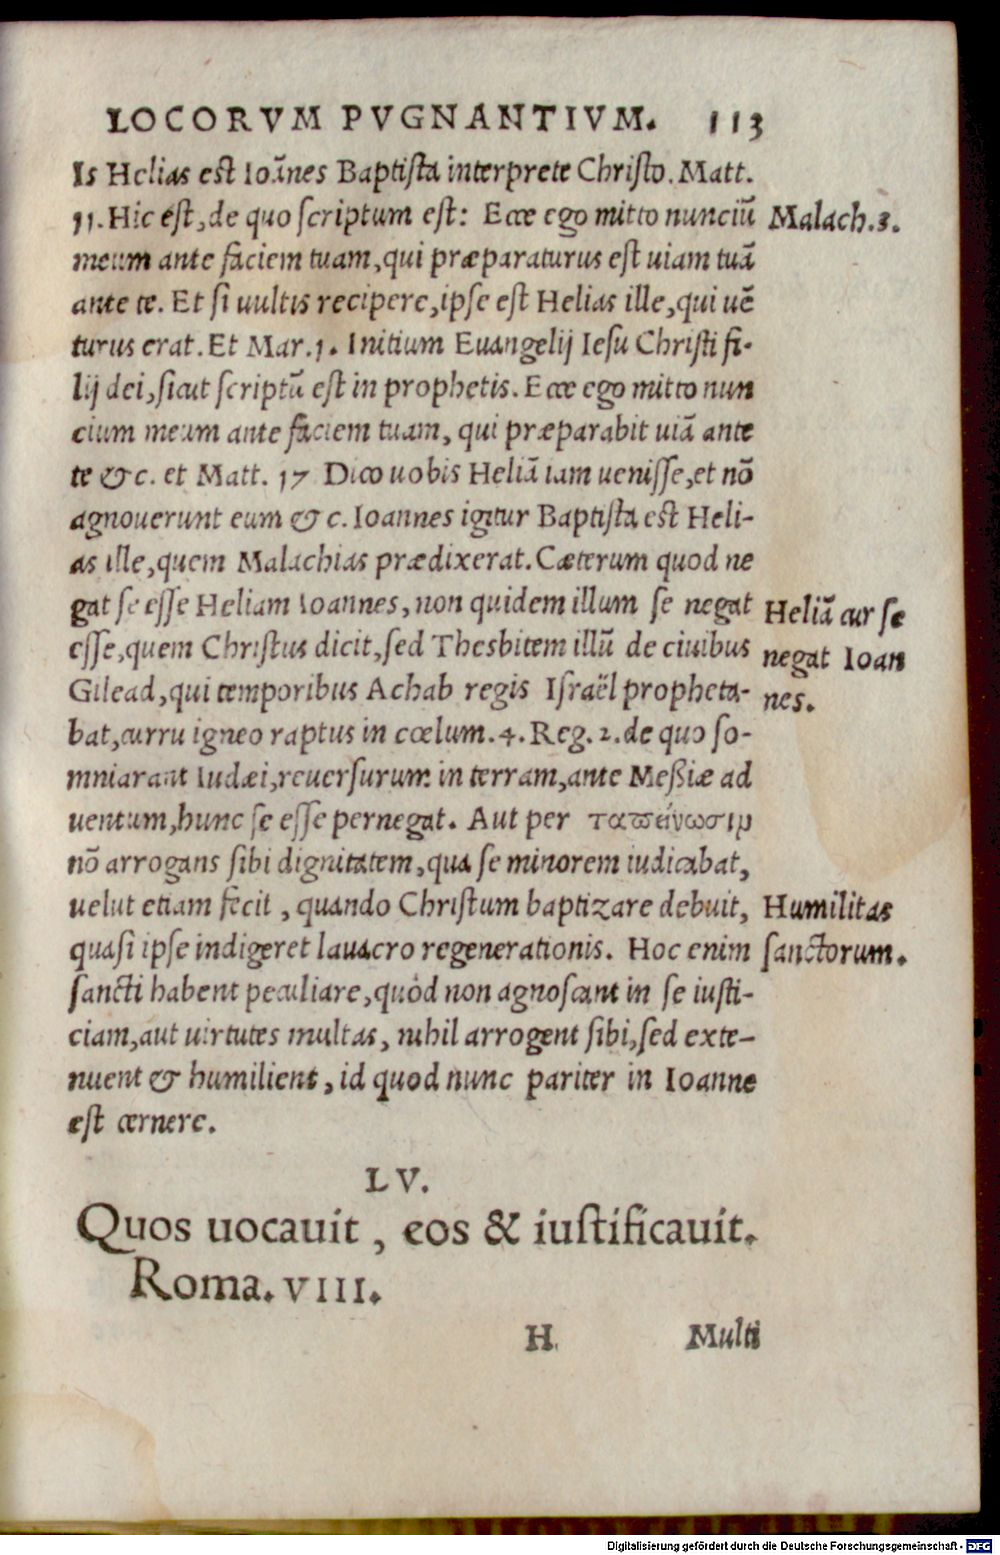 LOCORVM PVGNANTIVM. 113
Is Helias est Ioãnes Baptista interprete Christo. Matt.
11. Hic est, de quo scriptum est: Ecce ego mitto nunciũ
Malach.3.
meum ante faciem tuam, qui præparaturus est uiam tuã
ante te. Et si uultis recipere, ipse est Helias ille, qui uẽ
turus erat. Et Mar.1. Initium Euangelij Iesu Christi fi-
lij dei, sicut scriptũ est in prophetis. Ecce ego mitto nun
cium meum ante faciem tuam, qui præparabit uiã ante
te & c. et Matt. 17 Dico uobis Heliã iam uenisse, et nõ
agnouerunt eum & c. Ioannes igitur Baptista est Heli-
as ille, quem Malachias prædixerat. Cæterum quod ne
gat se esse Heliam Ioannes, non quidem illum se negat
Heliã cur se
esse, quem Christus dicit, sed Thesbitem illũ de ciuibus
negat Ioan
Gilead, qui temporibus Achab regis Israël propheta-
nes.
bat, curru igneo raptus in cœlum. 4. Reg. 2. de quo so-
mniarant Iudæi, reuersurum in terram, ante Meßiæ ad
uentum, hunc se esse pernegat. Aut per ταπείνωσιν
nõ arrogans sibi dignitatem, qua se minorem iudicabat,
uelut etiam fecit, quando Christum baptizare debuit,
Humilitas
quasi ipse indigeret lauacro regenerationis. Hoc enim
sanctorum.
sancti habent peculiare, quòd non agnoscant in se iusti-
ciam, aut uirtutes multas, nihil arrogent sibi, sed exte-
nuent & humilient, id quod nunc pariter in Ioanne
est cernere.
LV.
Quos uocauit, eos & iustificauit.
Roma. VIII.
H Multi
Digitalisierung gefördert durch die Deutsche Forschungsgemeinschaft - DFG